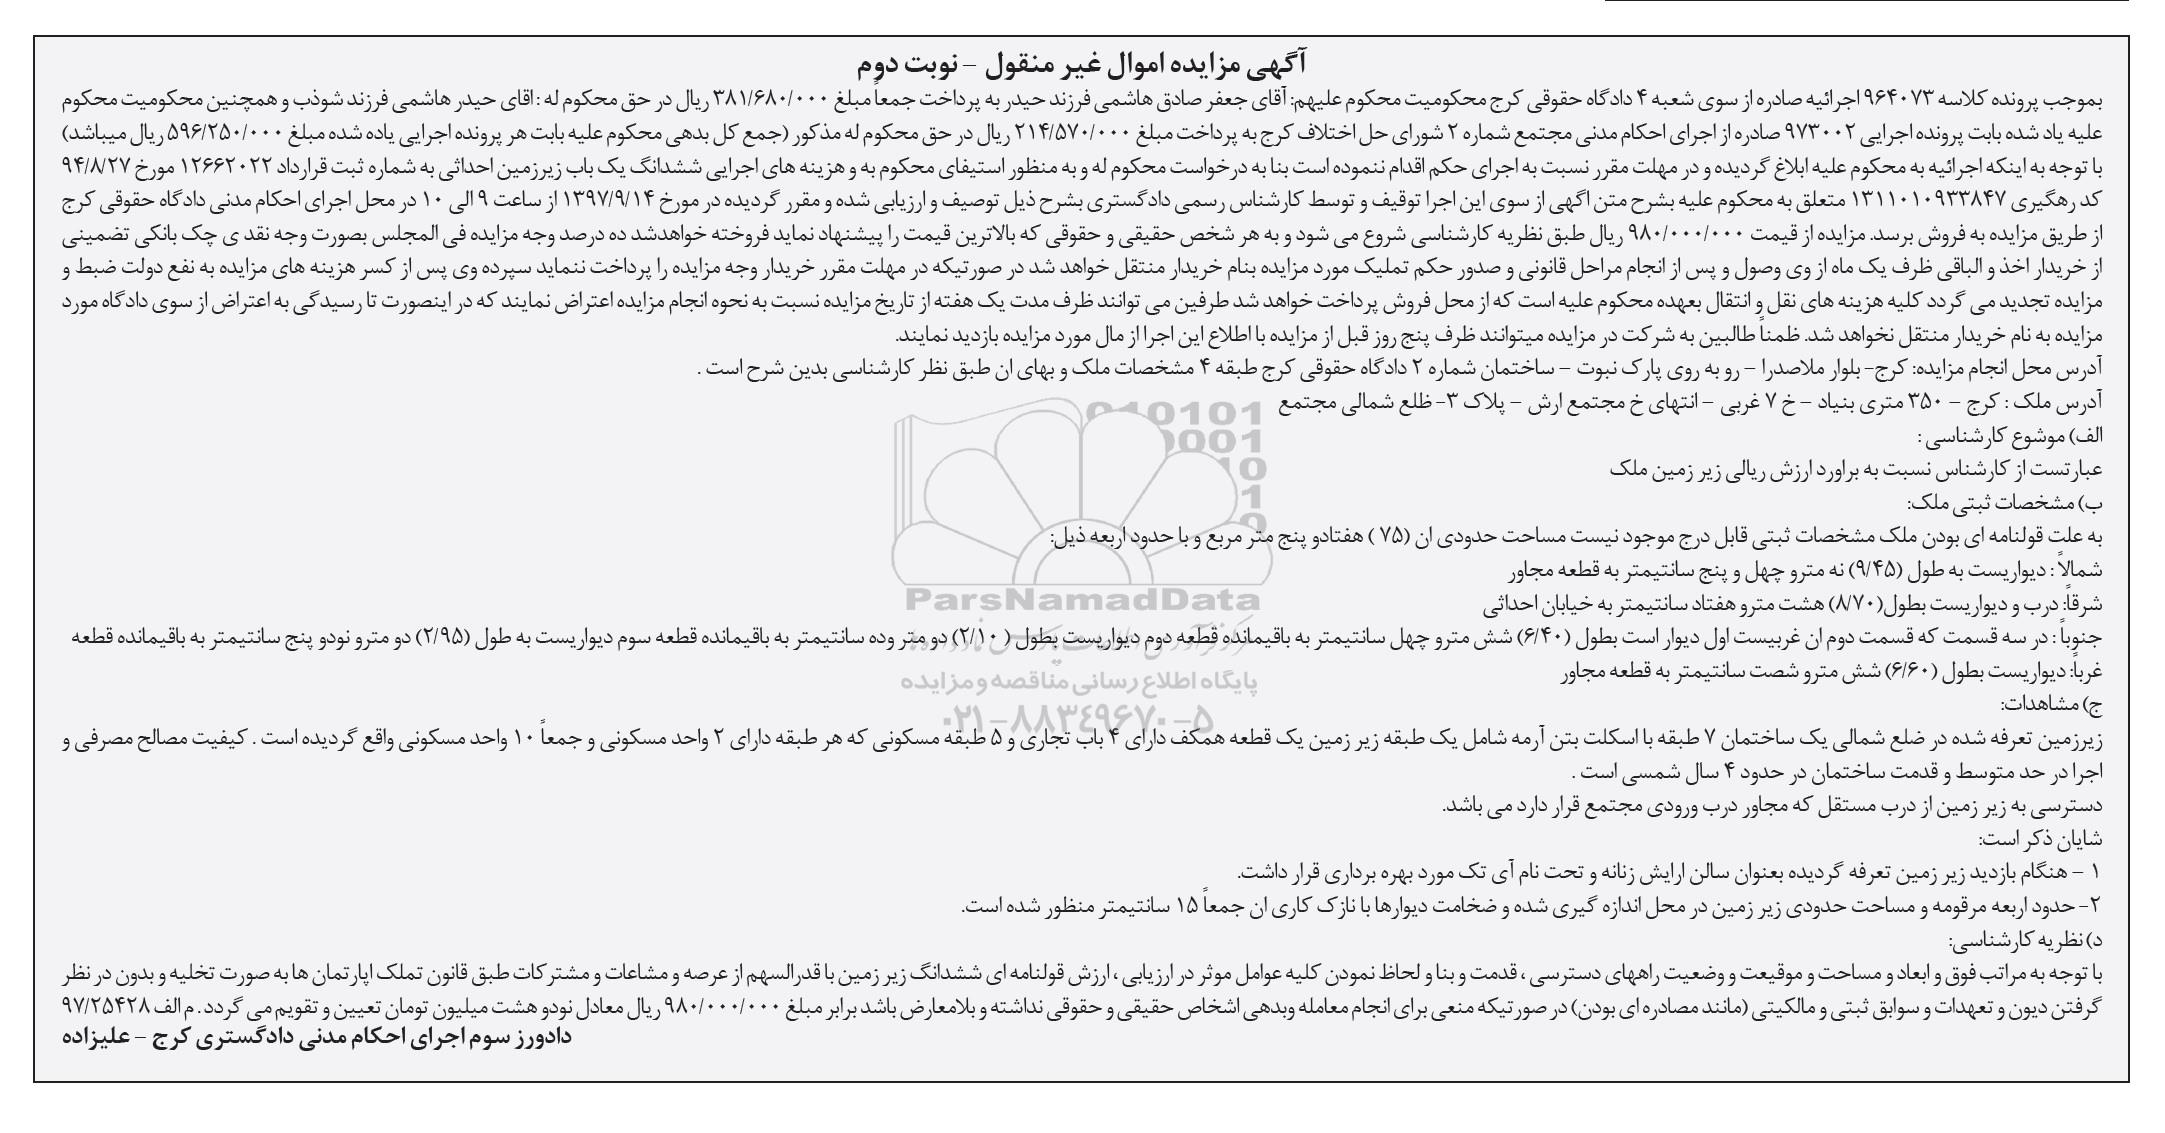 آگهی مزایده اموال غیر منقول – نوبت دوم
بموجب پرونده کلاسه ۹۶۴۰۷۳ اجرائیه صادره از سوی شعبه ۴ دادگاه حقوقی کرج محکومیت محکوم علیهم: آقای جعفر صادق هاشمی فرزند حیدر به پرداخت جمعاً مبلغ ۳۸۱/۶۸۰/۰۰۰ ریال در حق محکوم له : اقای حیدر هاشمی فرزند شوذب و همچنین محکومیت محکوم
علیه یاد شده بابت پرونده اجرایی ۹۷۳۰۰۲ صادره از اجرای احکام مدنی مجتمع شماره ۲ شورای حل اختلاف کرج به پرداخت مبلغ ۲۱۴/۵۷۰/۰۰۰ ریال در حق محکوم له مذکور (جمع کل بدهی محکوم علیه بابت هر پرونده اجرایی یاده شده مبلغ ۵۹۶/۲۵۰/۰۰۰ ریال میباشد)
با توجه به اینکه اجرائیه به محکوم علیه ابلاغ گردیده و در مهلت مقرر نسبت به اجرای حکم اقدام ننموده است بنا به درخواست محکوم له و به منظور استیفای محکوم به و هزینه های اجرایی ششدانگ یک باب زیرزمین احداثی به شماره ثبت قرارداد ۱۲۶۶۲۰۲۲ مورخ ۹۴/۸/۲۷
کد رهگیری ۱۳۱۱۰۱۰۹۳۳۸۴۷ متعلق به محکوم علیه بشرح متن اگهی از سوی این اجرا توقیف و توسط کارشناس رسمی دادگستری بشرح ذیل توصیف و ارزیابی شده و مقرر گردیده در مورخ ۱۳۹۷/۹/۱۴ از ساعت ۹ الی ۱۰ در محل اجرای احکام مدنی دادگاه حقوقی کرج
از طریق مزایده به فروش برسد. مزایده از قیمت ۹۸۰/۰۰۰/۰۰۰ ریال طبق نظریه کارشناسی شروع می شود و به هر شخص حقیقی و حقوقی که بالاترین قیمت را پیشنهاد نماید فروخته خواهدشد ده درصد وجه مزایده فی المجلس بصورت وجه نقد ی چک بانکی تضمینی
از خریدار اخذ و الباقی ظرف یک ماه از وی وصول و پس از انجام مراحل قانونی و صدور حکم تملیک مورد مزایده بنام خریدار منتقل خواهد شد در صورتیکه در مهلت مقرر خریدار وجه مزایده را پرداخت ننماید سپرده وی پس از کسر هزینه های مزایده به نفع دولت ضبط و
مزایده تجدید می گردد کلیه هزینه های نقل و انتقال بعهده محکوم علیه است که از محل فروش پرداخت خواهد شد طرفین می توانند ظرف مدت یک هفته از تاریخ مزایده نسبت به نحوه انجام مزایده اعتراض نمایند که در اینصورت تا رسیدگی به اعتراض از سوی دادگاه مورد
مزایده به نام خریدار منتقل نخواهد شد. ظمناً طالبین به شرکت در مزایده میتوانند ظرف پنج روز قبل از مزایده با اطلاع این اجرا از مال مورد مزایده بازدید نمایند.
آدرس محل انجام مزایده: کرج- بلوار ملاصدرا – رو به روی پارک نبوت – ساختمان شماره ۲ دادگاه حقوقی کرج طبقه ۴ مشخصات ملک و بهای ان طبق نظر کارشناسی بدین شرح است .
آدرس ملک : کرج – ۳۵۰ متری بنیاد – خ ۷ غربی – انتهای خ مجتمع ارش – پلاک ۳- ظلع شمالی مجتمع
الف) موشوع کارشناسی :
عبارتست از کارشناس نسبت به براورد ارزش ریالی زیر زمین ملک
ب) مشخصات ثبتی ملک:
به علت قولنامه ای بودن ملک مشخصات ثبتی قابل درج موجود نیست مساحت حدودی ان (۷۵ ) هفتادو پنج متر مربع و با حدود اربعه ذیل:
شمالاً : دیواریست به طول (۹/۴۵) نه مترو چهل و پنج سانتیمتر به قطعه مجاور
شرقاً: درب و دیواریست بطول(۸/۷۰) هشت مترو هفتاد سانتیمتر به خیابان احداثی
جنوباً : در سه قسمت که قسمت دوم ان غربیست اول دیوار است بطول (۶/۴۰) شش مترو چهل سانتیمتر به باقیمانده قطعه دوم دیواریست بطول ( ۲/۱۰) دو متر وده سانتیمتر به باقیمانده قطعه سوم دیواریست به طول (۲/۹۵) دو مترو نودو پنج سانتیمتر به باقیمانده قطعه
غرباً: دیواریست بطول (۶/۶۰) شش مترو شصت سانتیمتر به قطعه مجاور
ج) مشاهدات:
زیرزمین تعرفه شده در ضلع شمالی یک ساختمان ۷ طبقه با اسکلت بتن آرمه شامل یک طبقه زیر زمین یک قطعه همکف دارای ۴ باب تجاری و ۵ طبقه مسکونی که هر طبقه دارای ۲ واحد مسکونی و جمعاً ۱۰ واحد مسکونی واقع گردیده است . کیفیت مصالح مصرفی و
اجرا در حد متوسط و قدمت ساختمان در حدود ۴ سال شمسی است .
دسترسی به زیر زمین از درب مستقل که مجاور درب ورودی مجتمع قرار دارد می باشد.
شایان ذکر است:
۱ – هنگام بازدید زیر زمین تعرفه گردیده بعنوان سالن ارایش زنانه و تحت نام آی تک مورد بهره برداری قرار داشت.
۲- حدود اربعه مرقومه و مساحت حدودی زیر زمین در محل اندازه گیری شده و ضخامت دیوارها با نازک کاری ان جمعاً ۱۵ سانتیمتر منظور شده است.
د) نظریه کارشناسی:
با توجه به مراتب فوق و ابعاد و مساحت و موقیعت و وضعیت راههای دسترسی ، قدمت و بنا و لحاظ نمودن کلیه عوامل موثر در ارزیابی ، ارزش قولنامه ای ششدانگ زیر زمین با قدرالسهم از عرصه و مشاعات و مشترکات طبق قانون تملک اپارتمان ها به صورت تخلیه و بدون در نظر
گرفتن دیون و تعهدات و سوابق ثبتی و مالکیتی (مانند مصادره ای بودن) در صورتیکه منعی برای انجام معامله وبدهی اشخاص حقیقی و حقوقی نداشته و بلامعارض باشد برابر مبلغ ۹۸۰/۰۰۰/۰۰۰ ریال معادل نودو هشت میلیون تومان تعیین و تقویم می گردد . م الف ۹۷/۲۵۴۲۸
دادورز سوم اجرای احکام مدنی دادگستری کرج – علیزاده
ParsNamadData
پایگاه اطلاع رسانی مناقصه و مزایده
۰۲۱-۸۸۳۴۹۶۷۰-۵